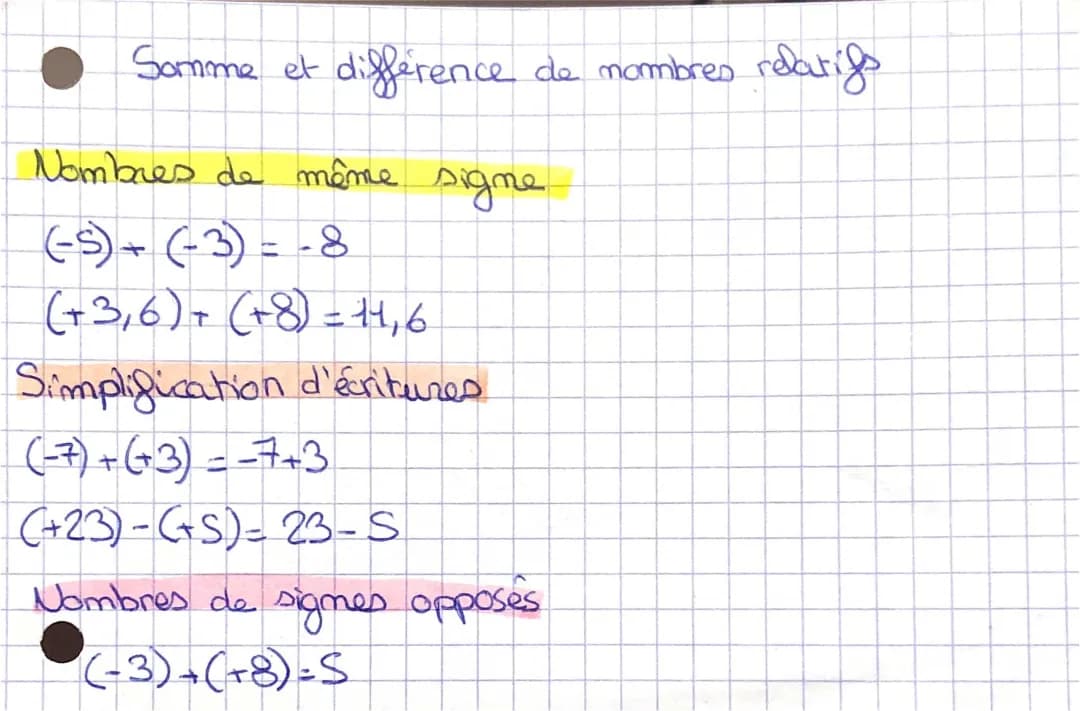 Somme et différence de nombres relatifs
Nombres de même signe
(-5) + (-3) = -8
(+3,6) + (+8) = 11,6
Simplification d'écritures
(-7) + (+3) = -7+3
(+23) - (+5) = 23-5
Nombres de signes opposés
(-3) + (+8) = 5